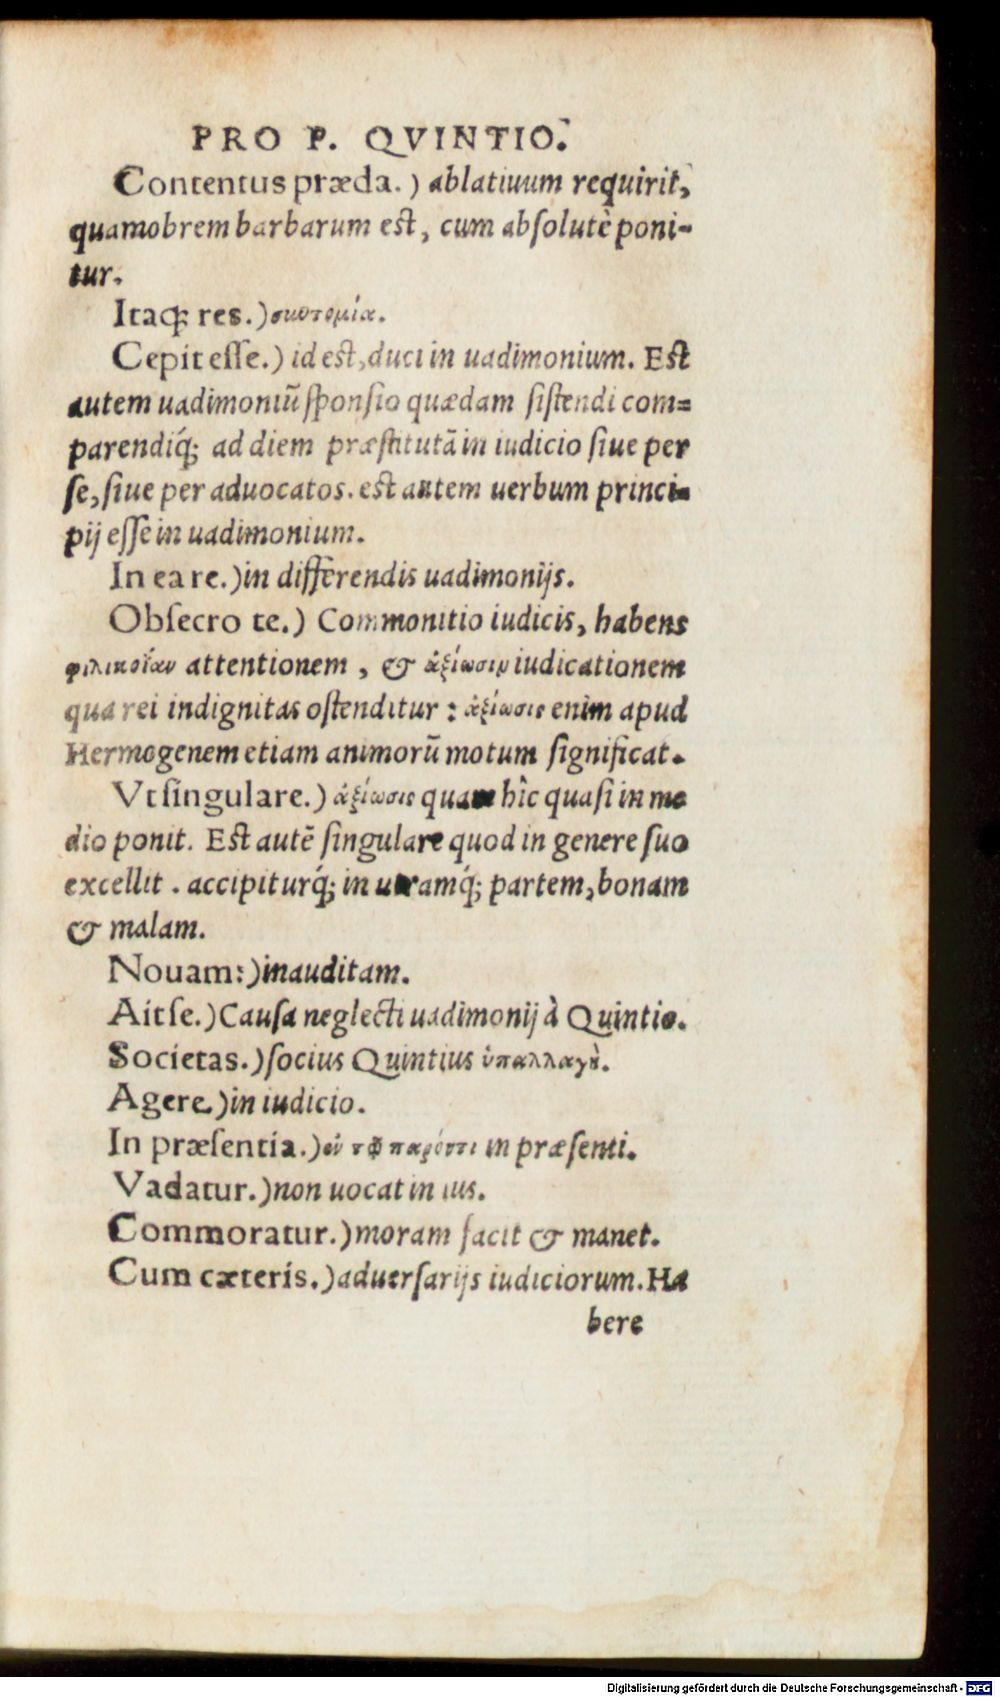 PRO P. QVINTIO.
Contentus præda.) ablatiuum requirit,
quamobrem barbarum est, cum absolutè poni-
tur.
Itaq; res.) συντομία.
Cepit esse.) id est, duci in uadimonium. Est
autem uadimoniū sponsio quædam sistendi com=
parendiq́; ad diem præstitutā in iudicio siue per
se, siue per aduocatos. est autem uerbum princi-
pij esse in uadimonium.
In ea re.) in differendis uadimonijs.
Obsecro te.) Commonitio iudicis, habens
attentionem, & ἀξίωσιν iudicationem
qua rei indignitas ostenditur: ἀξίωσις enim apud
Hermogenem etiam animorū motum significat.
Vt singulare.) ἀξίωσις quam hîc quasi in me
dio ponit. Est autē singulare quod in genere suo
excellit. accipiturq́; in utramq́; partem, bonam
& malam.
Nouam:) inauditam.
Ait se.) Causa neglecti uadimonij à Quintio.
Societas.) socius Quintius ὑπαλλαγὴ.
Agere.) in iudicio.
In præsentia.) ἐν τῷ παρόντι in præsenti.
Vadatur.) non uocat in ius.
Commoratur.) moram facit & manet.
Cum cæteris.) aduersarijs iudiciorum. Ha
bere
Digitalisierung gefördert durch die Deutsche Forschungsgemeinschaft - DFG